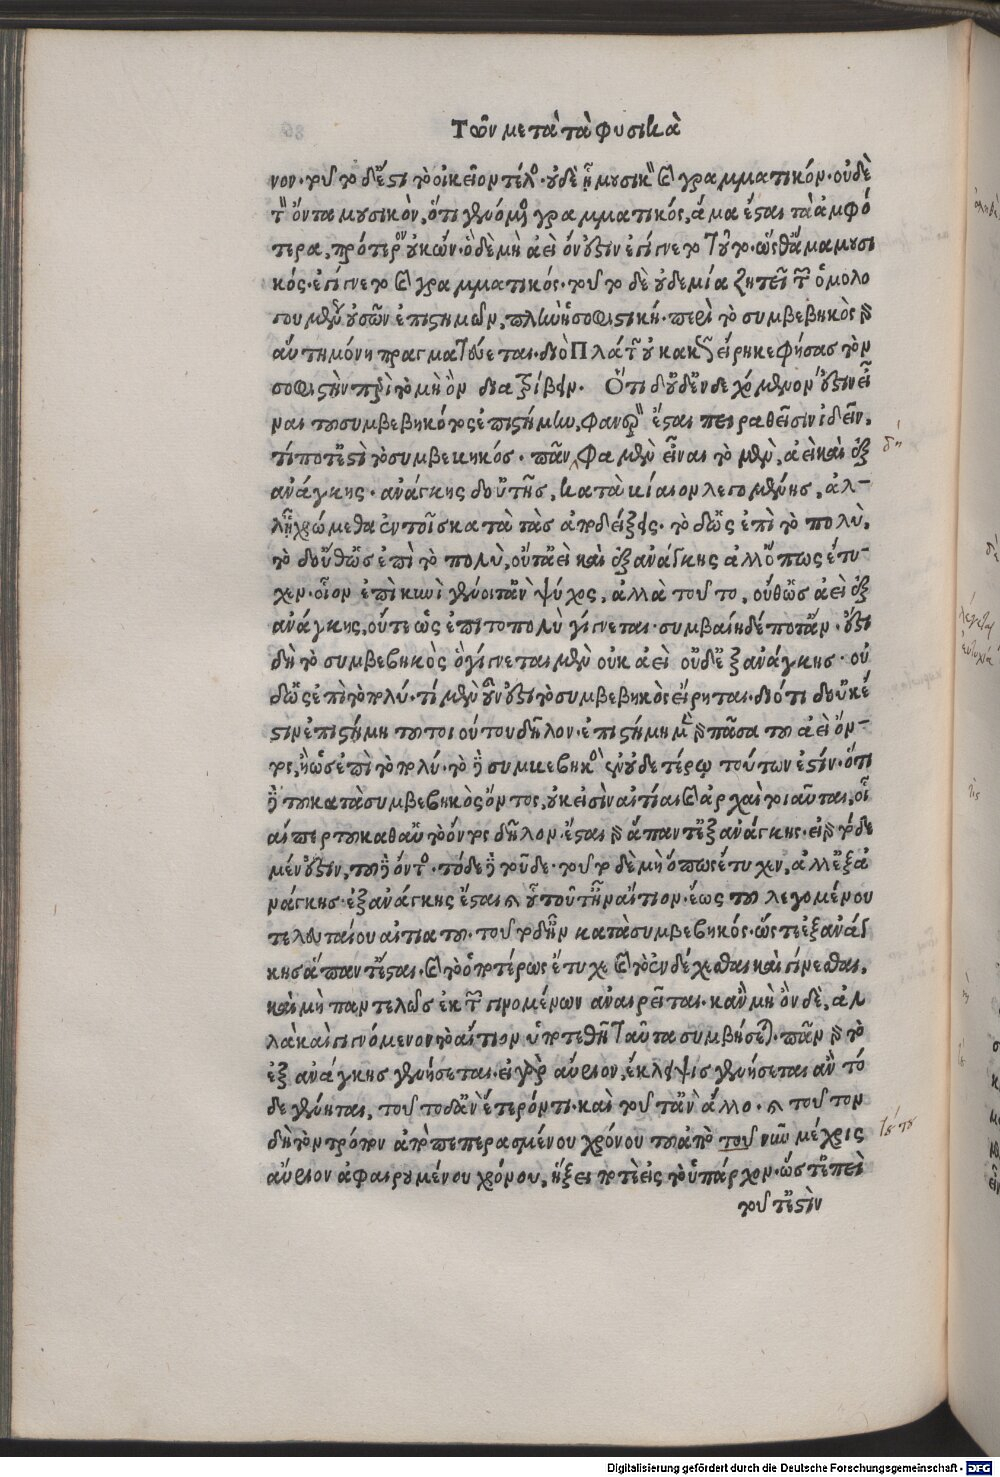 Τῶν μετὰ τὰ φυσικὰ
νον. τοῦτο δ' ἔστι τὸ οἰκεῖον τέλος. οὐδὲ ἡ μουσικὴ καὶ γραμματικόν. οὐδὲ
τὸν ὄντα μουσικὸν, ὅτι γενόμενος γραμματικός, ἅμα ἔσται τὰ ἀμφό
τερα, πρότερον οὐκ ὤν. ὃ δὲ μὴ ἀεὶ ὄν ἐστιν ἐγίγνετο τοῦτο. ὥσθ' ἅμα μουσι
κός. ἐγίγνετο καὶ γραμματικός. τοῦτο δὲ οὐδεμία ζητεῖ τῶν ὁμολο
γουμένως οὐσῶν ἐπιστημῶν, πλὴν ἡ σοφιστική. περὶ τὸ συμβεβηκὸς γὰρ
αὕτη μόνη πραγματεύεται. διὸ Πλάτων οὐ κακῶς εἴρηκε φήσας τὸν
σοφιστὴν περὶ τὸ μὴ ὂν διατρίβειν. Ὅτι δ' οὐδ' ἐνδεχόμενον ἐστιν εἶ
ναι τοῦ συμβεβηκότος ἐπιστήμην, φανερὸν ἔσται πειραθεῖσιν ἰδεῖν,
τί ποτ' ἐστὶ τὸ συμβεκηκός. πᾶν φαμὲν εἶναι τὸ μὲν, ἀεὶ καὶ ἐξ
δή
ἀνάγκης. ἀνάγκης δ' οὐ τῆς, κατὰ βίαιον λεγομένης, ἀλ-
λ' ᾗ χρώμεθα ἐν τοῖς κατὰ τὰς ἀποδείξεις. τὸ δ' ὡς ἐπὶ τὸ πολὺ,
τὸ δ' οὔθ' ὡς ἐπὶ τὸ πολὺ, οὔτ' ἀεὶ καὶ ἐξ ἀνάγκης ἀλλ' ὅπως ἔτυ-
χεν. οἷον ἐπὶ κυνὶ γένοιτ' ἂν ψύχος, ἀλλὰ τοῦτο, οὔθ' ὡς ἀεὶ ἐξ
ἀνάγκης, οὔτε ὡς ἐπὶ τὸ πολὺ γίγνεται. συμβαίη δέ ποτ' ἄν. ἔστι
δὴ τὸ συμβεβηκὸς ὃ γίγνεται μὲν οὐκ ἀεὶ οὐδ' ἐξ ἀνάγκης. οὐ
δ' ὡς ἐπὶ τὸ πολύ. τί μὲν οὖν ἐστι τὸ συμβεβηκὸς εἴρηται. διότι δ' οὐκ ἔ
στιν ἐπιστήμη τοῦ τοιούτου δῆλον. ἐπιστήμη μὲν γὰρ πᾶσα τοῦ ἀεὶ ὄν-
τος, ἢ ὡς ἐπὶ τὸ πολύ. τὸ δὲ συμβεβηκὸς ἐν οὐδετέρῳ τούτων ἐστίν. ὅτι
δὲ τοῦ κατὰ συμβεβηκὸς ὄντος, οὐκ εἰσὶν αἰτίαι καὶ ἀρχαὶ τοιαῦται, οἷ
αί περ τοῦ καθ' αὑτὸ ὄντος δῆλον. ἔσται γὰρ ἅπαντ' ἐξ ἀνάγκης. εἰ γὰρ τόδε
μέν ἐστιν, τοῦ δὲ ὄντος. τόδε δὲ τοῦδε. τοῦτο δὲ μὴ ὅπως ἔτυχεν, ἀλλ' ἐξ ἀ
νάγκης. ἐξ ἀνάγκης ἔσται καὶ οὗ τοῦτ' ἦν αἴτιον. ἕως τοῦ λεγομένου
τελευταίου αἰτιατοῦ. τοῦτο δ' ἦν κατὰ συμβεβηκός. ὥστε ἐξ ἀνάγ
κης ἅπαντ' ἔσται. καὶ τὸ ὁποτέρως ἔτυχε καὶ τὸ ἐνδέχεσθαι καὶ γίνεσθαι,
καὶ μὴ παντελῶς ἐκ τῶν γινομένων ἀναιρεῖται. κἂν μὴ ὂν δὲ, ἀλ
λὰ καὶ γιγνόμενον τὸ αἴτιον ὑποτεθῇ ταῦτα συμβήσεται. πᾶν γὰρ τὸ
ἐξ ἀνάγκης γενήσεται. εἰ γὰρ αὔριον, ἔκλειψις γενήσεται ἂν τό
δε γένηται, τοῦτο δ' ἂν ἕτερόν τι. καὶ τοῦτ' ἂν ἄλλο. καὶ τοῦτον
δὴ τὸν τρόπον ἀπὸ πεπερασμένου χρόνου τοῦ ἀπὸ τοῦ νῦν μέχρις
τούτου
αὔριον ἀφαιρουμένου χρόνου, ἥξει ποτὲ εἰς τὸ ὑπάρχον. ὥστ' ἐπεὶ
τοῦτ' ἐστὶν
Digitalisierung gefördert durch die Deutsche Forschungsgemeinschaft - DFG